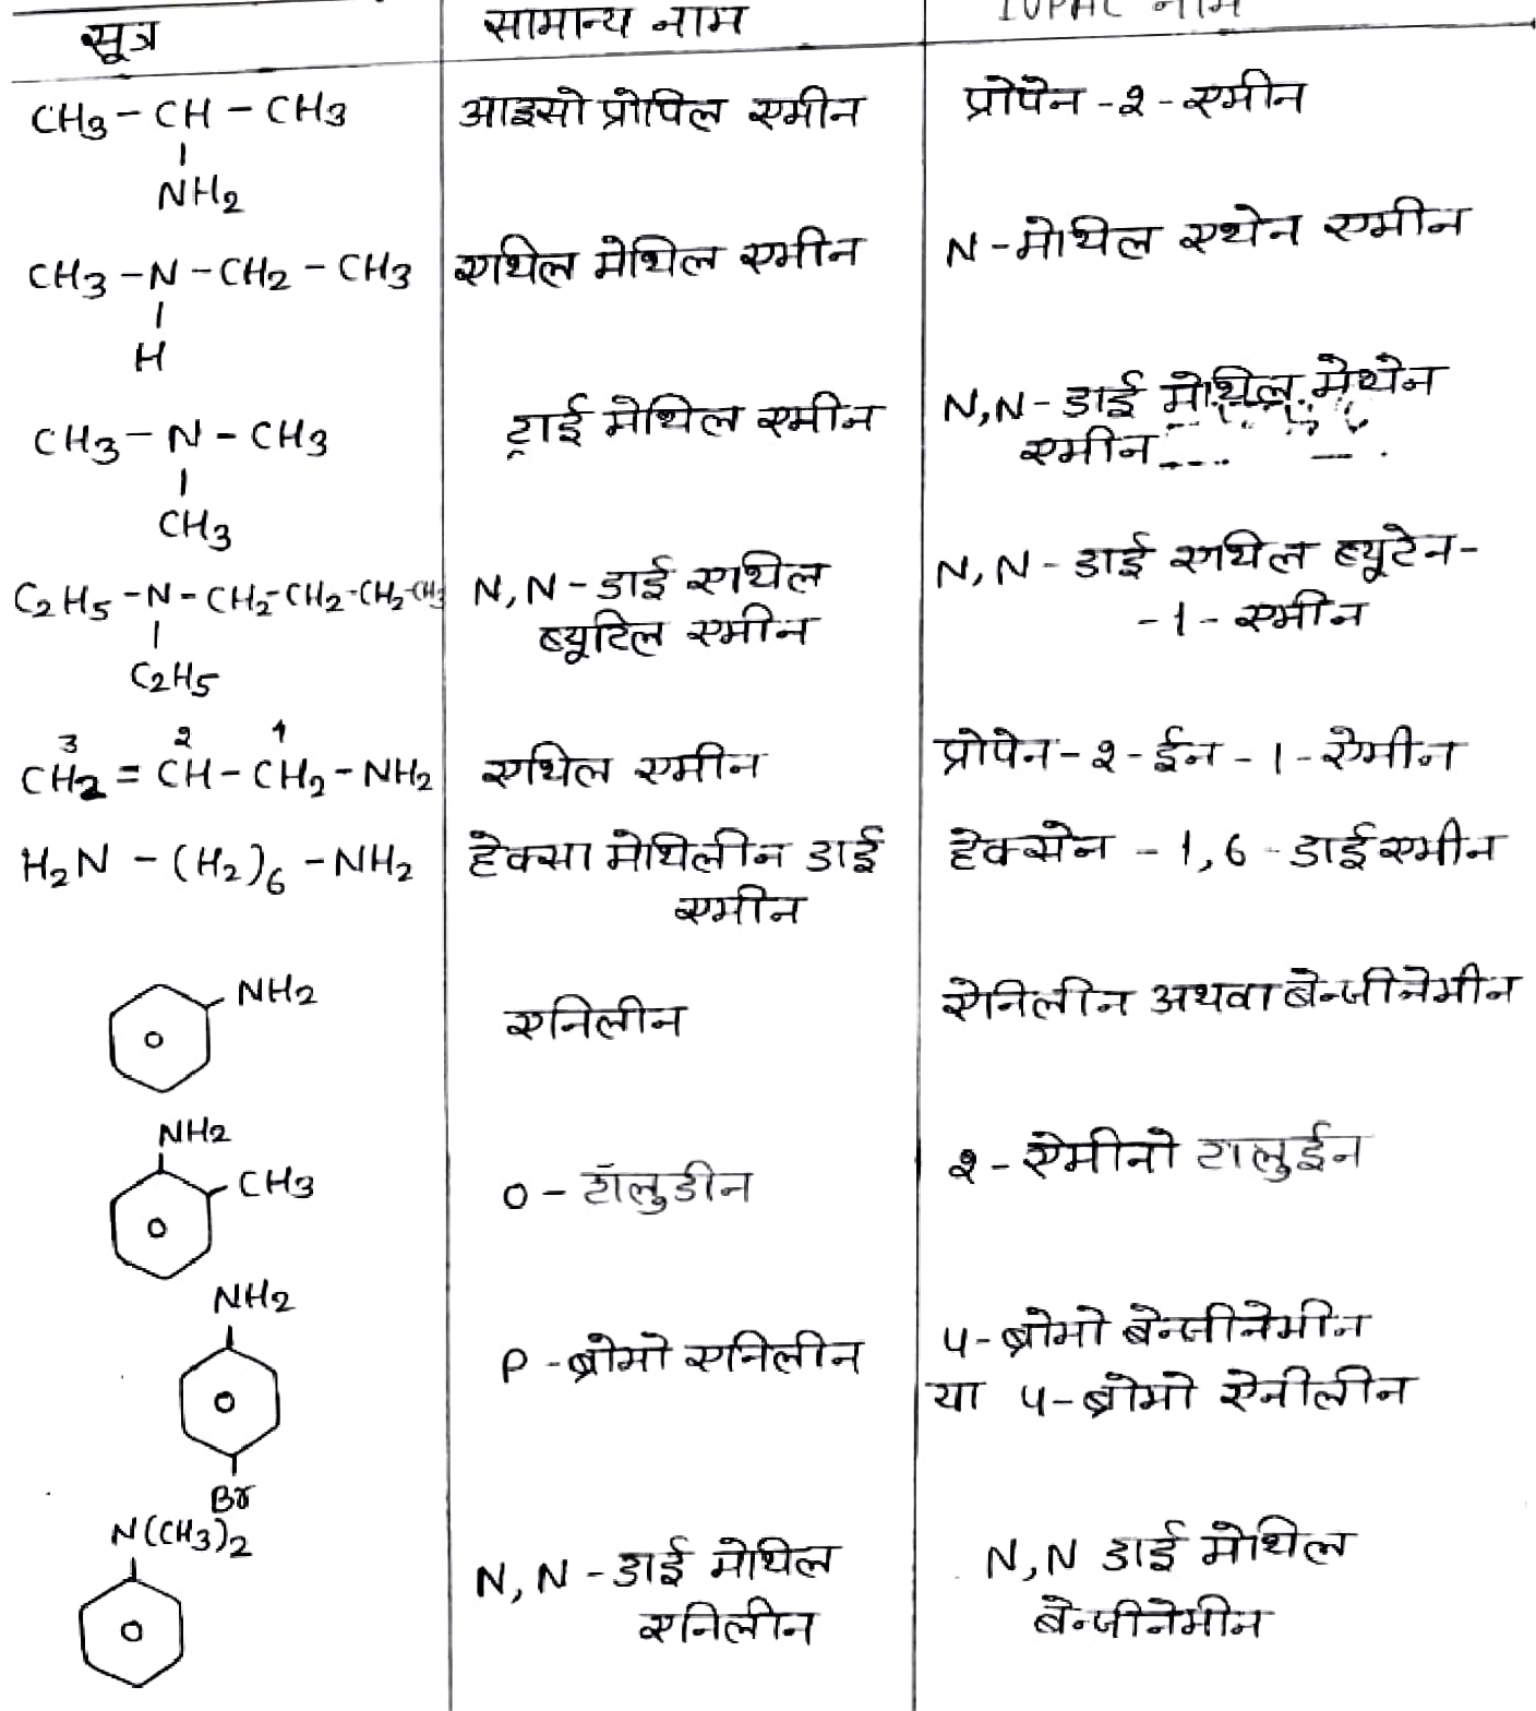 सूत्र सामान्य नाम IUPAC नाम
CH3 - CH - CH3 आइसो प्रोपिल एमीन प्रोपेन - २ - एमीन
NH2
CH3 - N - CH2 - CH3 एथिल मेथिल एमीन N - मेथिल एथेन एमीन
H
CH3 - N - CH3 ट्राई मेथिल एमीन N,N - डाई मेथिल मेथेन
एमीन
CH3
C2H5 - N - CH2-CH2-CH2-CH3 N,N - डाई एथिल N,N - डाई एथिल ब्यूटेन-
ब्यूटिल एमीन - 1 - एमीन
C2H5
3 २ 1
CH2 = CH - CH2 - NH2 एथिल एमीन प्रोपेन - २ - ईन - 1 - ऐमीन
H2N - (H2)6 - NH2 हेक्सा मेथिलीन डाई हेक्सेन - 1,6 - डाई एमीन
एमीन
NH2 एनिलीन ऐनिलीन अथवा बेन्जीनेमीन
NH2
CH3 o - टॉलुडीन २ - ऐमीनो टालुईन
NH2
P - ब्रोमो एनिलीन 4 - ब्रोमो बेन्जीनेमीन
या 4 - ब्रोमो ऐनीलीन
Br
N(CH3)2 N,N - डाई मेथिल N,N डाई मेथिल
एनिलीन बेन्जीनेमीन